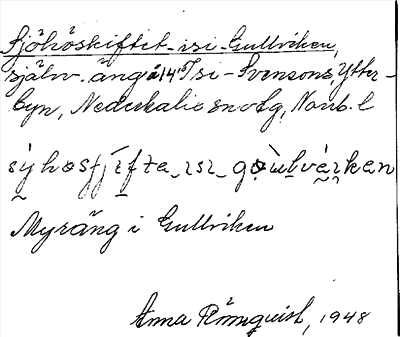 Sjöhöskiftet - isi - Gullviken,
själv. äng å 14 5/si - Svensons, Ytter-
byn, Nederkalix snvtg, Norrb. l
sýhøsfjɩfta_ɪsɪ_gɷ̀ɯlvɛ́ɪkɛn
Myräng i Gullviken
Anna Rönnquist, 1948